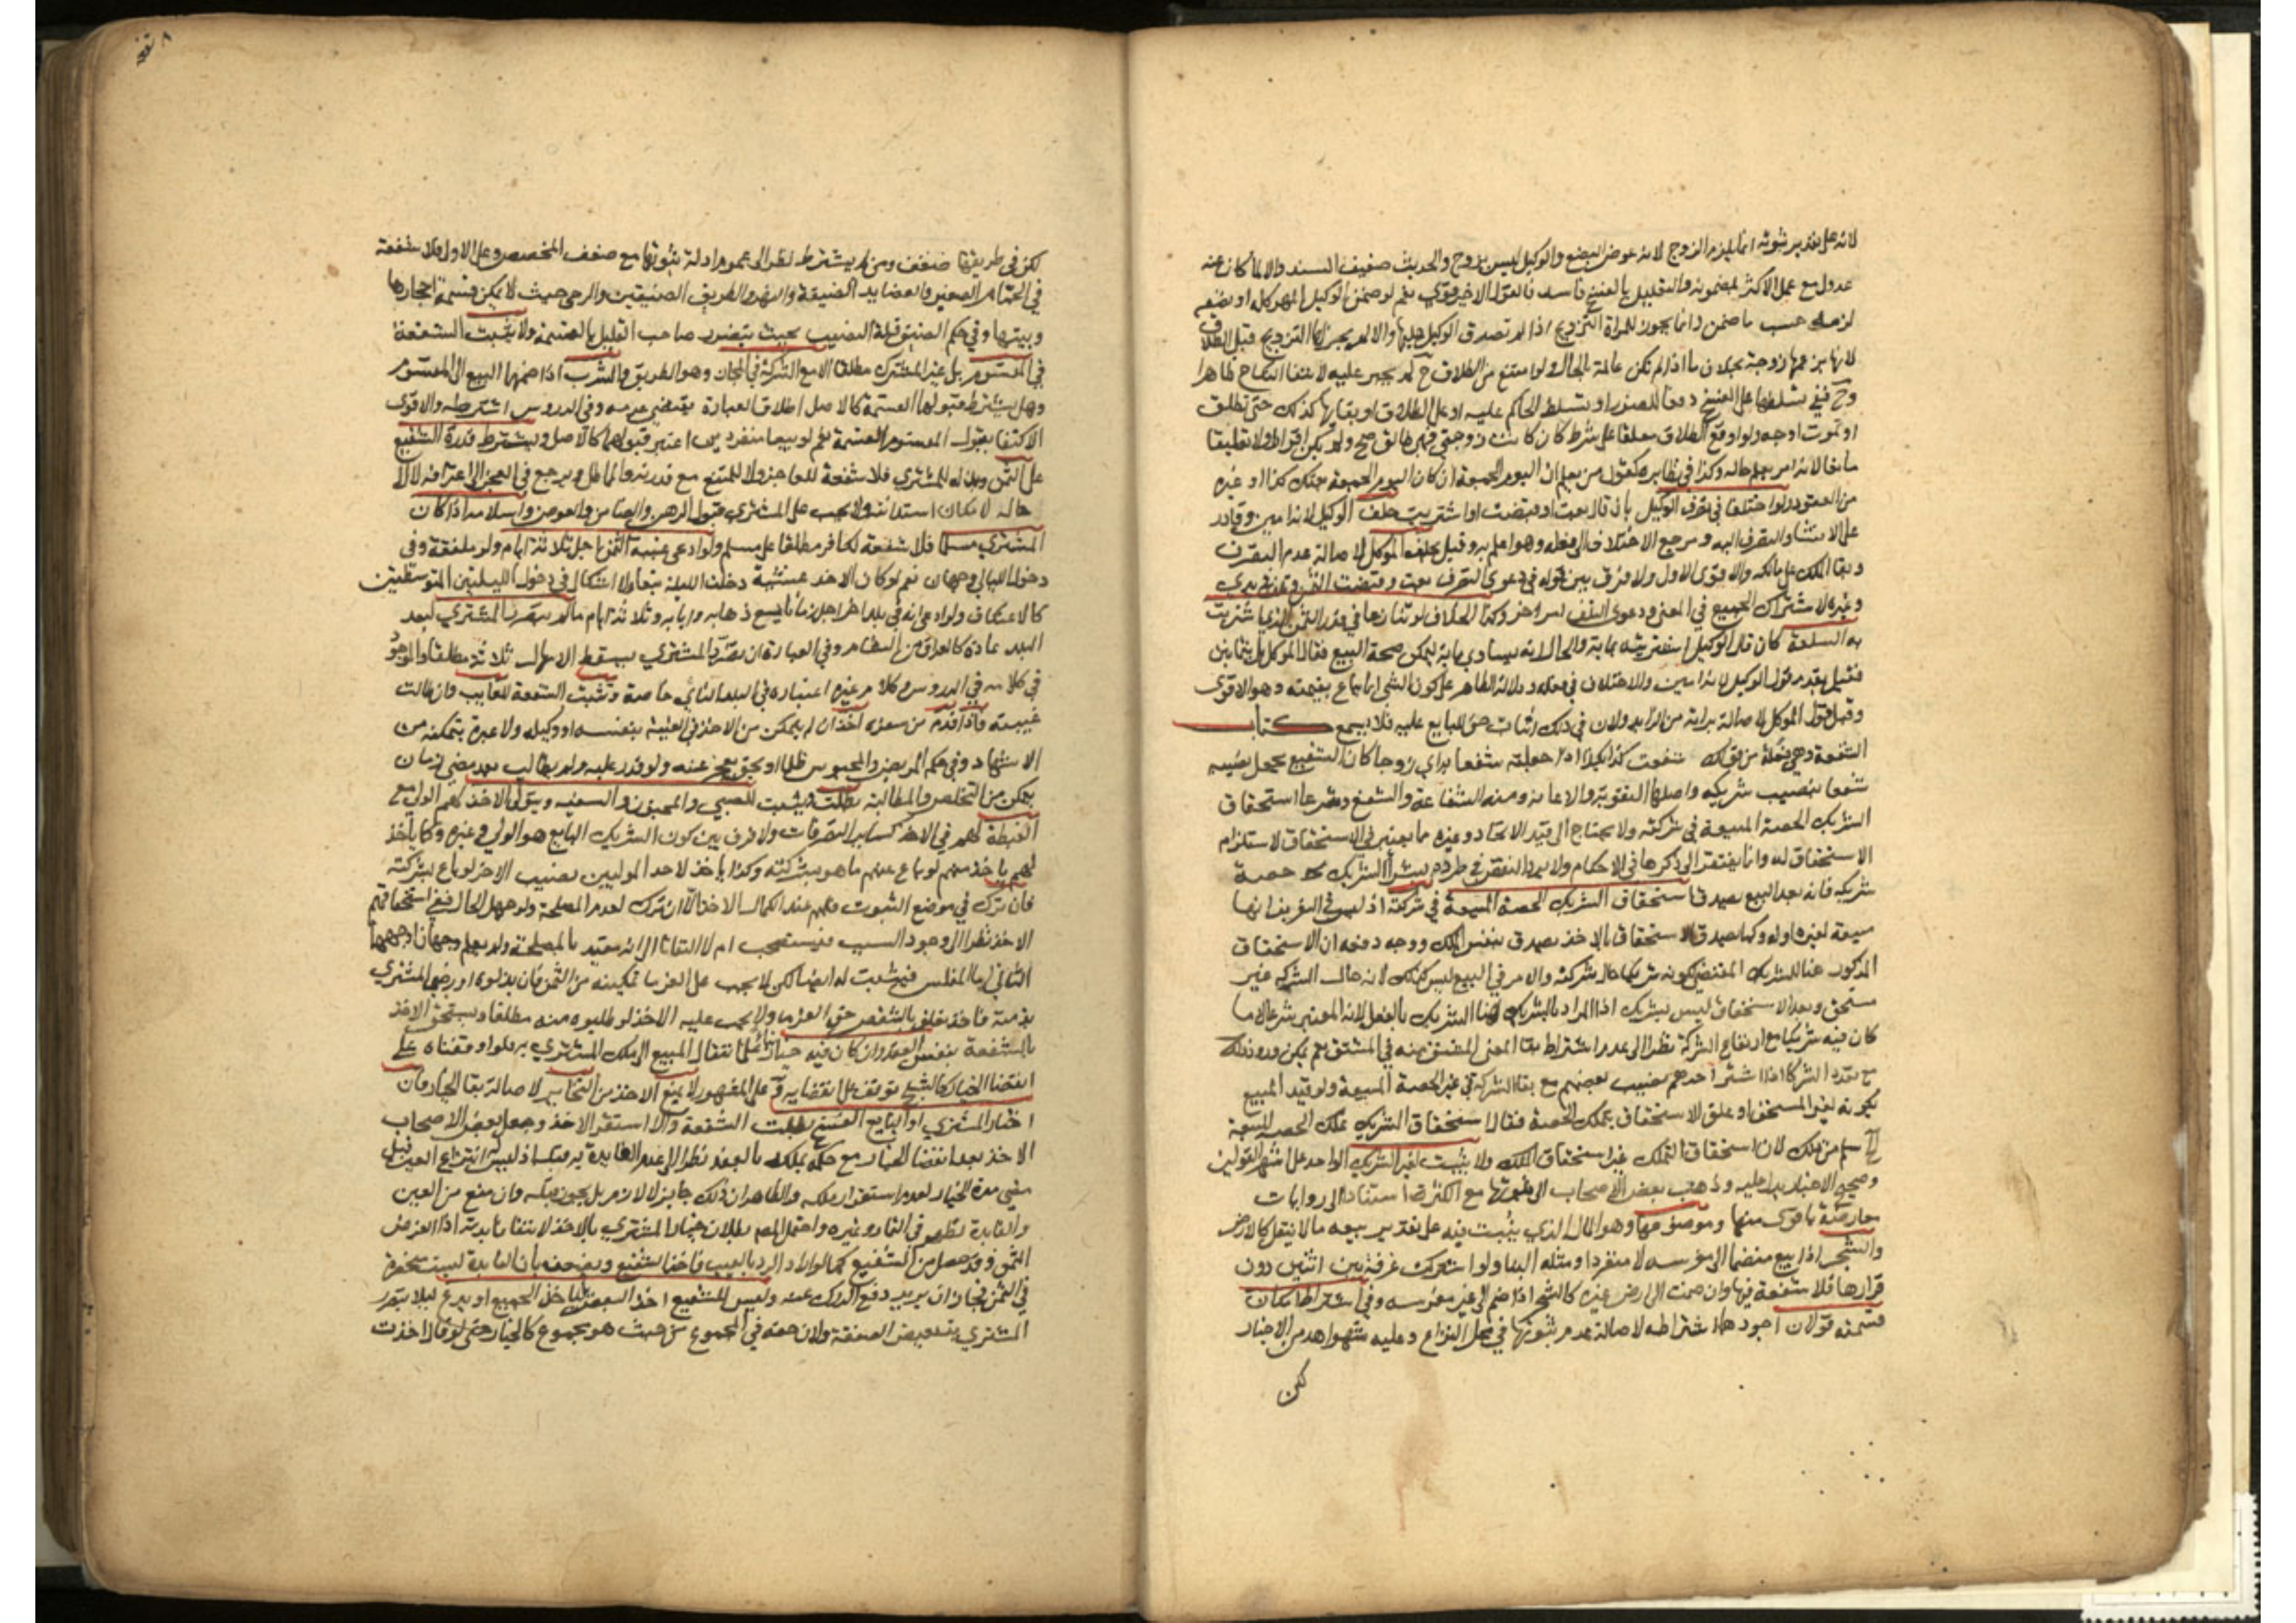 لانه على تقدير ثبوته انما يلزم الزوج لانه عوض البضع والوكيل ليس بزوج والحديث ضعيف السند والا لما كان عنه
عدول مع عمل الاكثر بمضمونه والتعليل بالفسخ فاسد فالقول الاخير قوي نعم لو ضمن الوكيل المهر كله او نصفه
لزمه حسب ما ضمن وانما يجوز للمراة التزويج اذا لم تصدق الوكيل عليها والا لم يجز لها التزويج قبل الطلاق
لانها بزعمها زوجة بخلاف ما اذا لم تكن عالمة بالحال ولو امتنع من الطلاق ح لم يجبر عليه لانتفا النكاح ظاهرا
وح ففي تسلطها على الفسخ دفعا للضرر او تسلط الحاكم عليه او على الطلاق او بقائها كذلك حتى تطلق
او تموت اوجه ولو اوقع الطلاق معلقا على شرط كان كانت زوجتي فهي طالق صح ولم يكن اقرارا ولا تعليقا
مانعا لانه امر يعلم حاله وكذا في نظايره كقول من يعلم ان اليوم الجمعة ان كان اليوم الجمعة بعتك كذا او غيره
من العقود ولو اختلفا في تصرف الوكيل بان قال بعت او قبضت او اشتريت حلف الوكيل لانه امين وقادر
على الانشا والتصرف اليه ومرجع الاختلاف الى فعله وهو اعلم به وقيل يحلف الموكل لاصالة عدم التصرف
وبقا الملك على مالكه والاقوى الاول ولا فرق بين قوله في دعوى التصرف بعت وقبضت الثمن وتلف في يدي
وغيره لاشتراك الجميع في المعنى ودعوى التلف امر اخر وكذا الخلاف لو تنازعا في قدر الثمن الذي اشتريت
به السلعة كان قال الوكيل اشتريته بماية والحال انه يساوي ماية ليمكن صحة البيع فقال الموكل بل بثمانين
فقيل يقدم قول الوكيل لانه امين والاختلاف في فعله ودلالة الظاهر على كون الشي انما يباع بقيمته وهو الاقوى
وقيل قول الموكل لاصالة براته من الزايد ولان في ذلك اثبات حق للبايع عليه فلا يسمع كتاب
الشفعة وهي فعلة من قولك شفعت كذا بكذا اذا جعلته شفعا به اي زوجا كان الشفيع يجعل نصيبه
شفعا بنصيب شريكه واصلها التقوية والاعانة ومنه الشفاعة والشفع وشرعا استحقاق
الشريك الحصة المبيعة في شركته ولا يحتاج الى قيد الاتحاد وغيره مما يعتبر في الاستحقاق لاستلزام
الاستحقاق له وانما يفتقر الى ذكرها في الاحكام ولا يرد النقض في طرده بشرا الشريك حصة
شريكه فانه بعد البيع يصدق استحقاق الشريك الحصة المبيعة في شركته اذ ليس في التعريف انها
مبيعة لغيره اوله وكما يصدق الاستحقاق بالاخذ يصدق بنفس الملك ووجه دفعه ان الاستحقاق
المذكور هنا للشريك المقتضي كونه شريكا حال شركته والامر في البيع ليس كذلك لانه حال الشركة غير
مستحق وبعد الاستحقاق ليس بشريك اذ المراد بالشريك هنا الشريك بالفعل لانه المعتبر شرعا لا ما
كان فيه شريكا مع ارتفاع الشركة نظرا الى عدم اشتراط بقا المعنى المشتق منه في المشتق نعم يمكن وروده ذلك
مع تعدد الشركا اذا اشترى احدهم نصيب بعضهم مع بقا الشركة في غير الحصة المبيعة ولو قيد المبيع
بكونه لغير المستحق او علق الاستحقاق بتملك الحصة فقال استحقاق الشريك تملك الحصة المبيعة
الخ سلم من ذلك لان استحقاق التملك غير استحقاق الملك ولا يثبت لغير الشريك الواحد على اشهر القولين
وصحيح الاخبار يدل عليه وذهب بعض الاصحاب الى ثبوتها مع الكثرة استنادا الى روايات
معارضة باقوى منها وموضوعها وهو المال الذي يثبت فيه على تقدير بيعه ما لا ينقل كالارض
والشجر اذا بيع منضما الى مغرسه لا منفردا ومثله البنا ولو اشتركت غرفة بين اثنين دون
قرارها فلا شفعة فيها وان ضمت الى ارض غيره كالشجر اذا ضم الى غير مغرسه وفي اشتراط امكان
قسمته قولان اجودهما اشتراطه لاصالة عدم ثبوتها في محل النزاع وعليه شواهد من الاخبار
لكن
لكن في طريقها ضعف ومن لم يشترط نظر الى عموم ادلة ثبوتها مع ضعف المخصص وعلى الاول فلا شفعة
في الحمام الصغير والعضايد الضيقة والنهر والطريق الضيقين والرحى حيث لا يمكن قسمة احجارها
وبيتها وفي حكم الضيق قلة النصيب بحيث يتضرر صاحب القليل بالقسمة ولا تثبت الشفعة
في المقسوم بل غير المشترك مطلقا الا مع الشركة في المجاز وهو الطريق والشرب اذا ضمهما البيع الى المقسوم
وهل يشترط قبولهما القسمة كالاصل اطلاق العبارة يقتضي عدمه وفي الدروس اشترطه والاقوى
الاكتفا بقبول المقسوم القسمة نعم لو بيعا منفردين اعتبر قبولهما كالاصل ويشترط قدرة الشفيع
على الثمن وبذله للمشتري فلا شفعة للعاجز ولا للممتنع مع قدرته والمماطل ويرجع في العجز الى اعترافه لا الى
حاله لامكان استدانته ولا يجب على المشتري قبول الرهن والضامن والعوض واسلامه اذا كان
المشتري مسلما فلا شفعة لكافر مطلقا على مسلم ولو ادعى غيبة الثمن اجل ثلاثة ايام ولو ملفقة وفي
دخول الليالي وجهان نعم لو كان الاخذ عشية دخلت الليلة تبعا ولا اشكال في دخول الليلتين المتوسطتين
كالاعتكاف ولو ادعى انه في بلد اخر اجل زمانا يسع ذهابه وايابه وثلاثة ايام ما لم يتضرر المشتري لبعد
البلد عادة كالعراق من الشام وفي العبارة ان تضرر المشتري يسقط الامهال ثلاثة مطلقا والموجود
في كلامه في الدروس وكلام غيره اعتباره في البلد النائي خاصة وتثبت الشفعة للغايب وان طالت
غيبته فاذا قدم من سفره اخذ ان لم يتمكن من الاخذ في الغيبة بنفسه او وكيله ولا عبرة بتمكنه من
الاشهاد وفي حكم المريض والمحبوس ظلما او بحق يعجز عنه ولو قدر عليه ولم يطالب بعد مضي زمان
يتمكن من التخلص والمطالبة بطلت ويثبت للصبي والمجنون والسفيه ويتولى الاخذ لهم الولي مع
الغبطة لهم في الاخذ كساير التصرفات ولا فرق بين كون الشريك البايع هو الولي وغيره وكما ياخذ
لهم ياخذ منهم لو باع عنهم ما هو بشركته وكذا ياخذ لاحد الموليين نصيب الاخر لو باع بشركته
فان ترك في موضع الثبوت فلهم عند الكمال الاخذ لا ان ترك لعدم المصلحة ولو جهل الحال ففي استحقاقهم
الاخذ نظرا الى وجود السبب فيستصحب ام لا التفاتا الى انه مقيد بالمصلحة ولم يعلم وجهان اوجههما
الثاني اما المفلس فيثبت له ايضا لكن لا يجب على الغرما تمكينه من الثمن فان بذلوه او رضي المشتري
بذمته فاخذ تعلق بالشقص حق الغرما ولا يجب عليه الاخذ لو طلبوه منه مطلقا ويستحق الاخذ
بالشفعة بنفس العقد وان كان فيه خيار بناء على انتقال المبيع الى ملك المشتري به ولو اوقفناه على
انقضا الخيار كالشيخ توقف على انقضايه وعلى المشهور لا يمنع الاخذ من التخاير لاصالة بقا الخيار فان
اختار المشتري او البايع الفسخ بطلت الشفعة والا استقر الاخذ وجعل بعض الاصحاب
الاخذ بعد انقضا الخيار مع حكمه بملكه بالعقد نظرا الى عدم الفايدة به قبله اذ ليس له انتزاع العين قبل
مضي مدة الخيار لعدم استقرار ملكه والظاهر ان ذلك جايز لا لازم بل يجوز قبله وان منع من العين
والفايدة تظهر في النما وغيره واحتمل المص بطلان خيار المشتري بالاخذ لانتفا فايدته اذ الغرض
الثمن وقد حصل من الشفيع كما لو اراد الرد بالعيب فاخذ الشفيع ويضعف بان الفايدة ليست منحصرة
في الثمن فجاز ان يريد دفع الدرك عنه وليس للشفيع اخذ البعض بل ياخذ الجميع او يدع ليلا يتضرر
المشتري بتبعيض الصفقة ولان حقه في المجموع من حيث هو مجموع كالخيار حتى لو قال اخذت